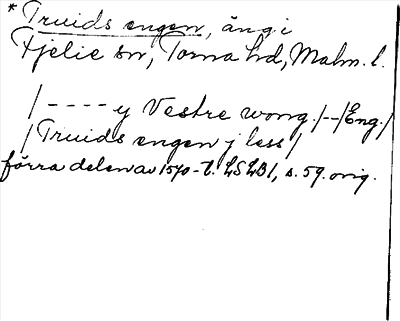 * Truids engen, äng i
Fjelie sn, Torna hd, Malm. l.
/ - - - - y Vestre wong. /--/Eng./
/ Truids engen j less /
förra delen av 1570-t. LSLB1, s. 59. orig.